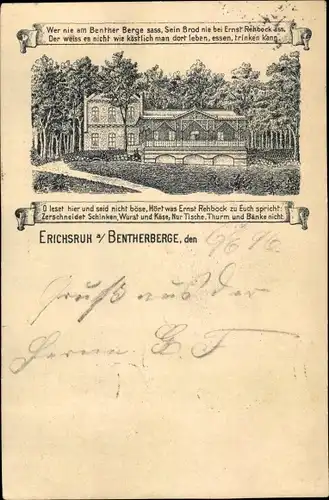 Wer nie am Benther Berge sass, Sein Brod nie bei Ernst Rehbock ass.
Der weiss es nicht wie köstlich man dort leben, essen, trinken kann.
O leset hier und seid nicht böse, Hört was Ernst Rehbock zu Euch spricht:
Zerschneidet Schinken, Wurst und Käse, Nur Tische, Thurm und Bänke nicht.
ERICHSRUH a/ BENTHERBERGE, den
Gruß aus der